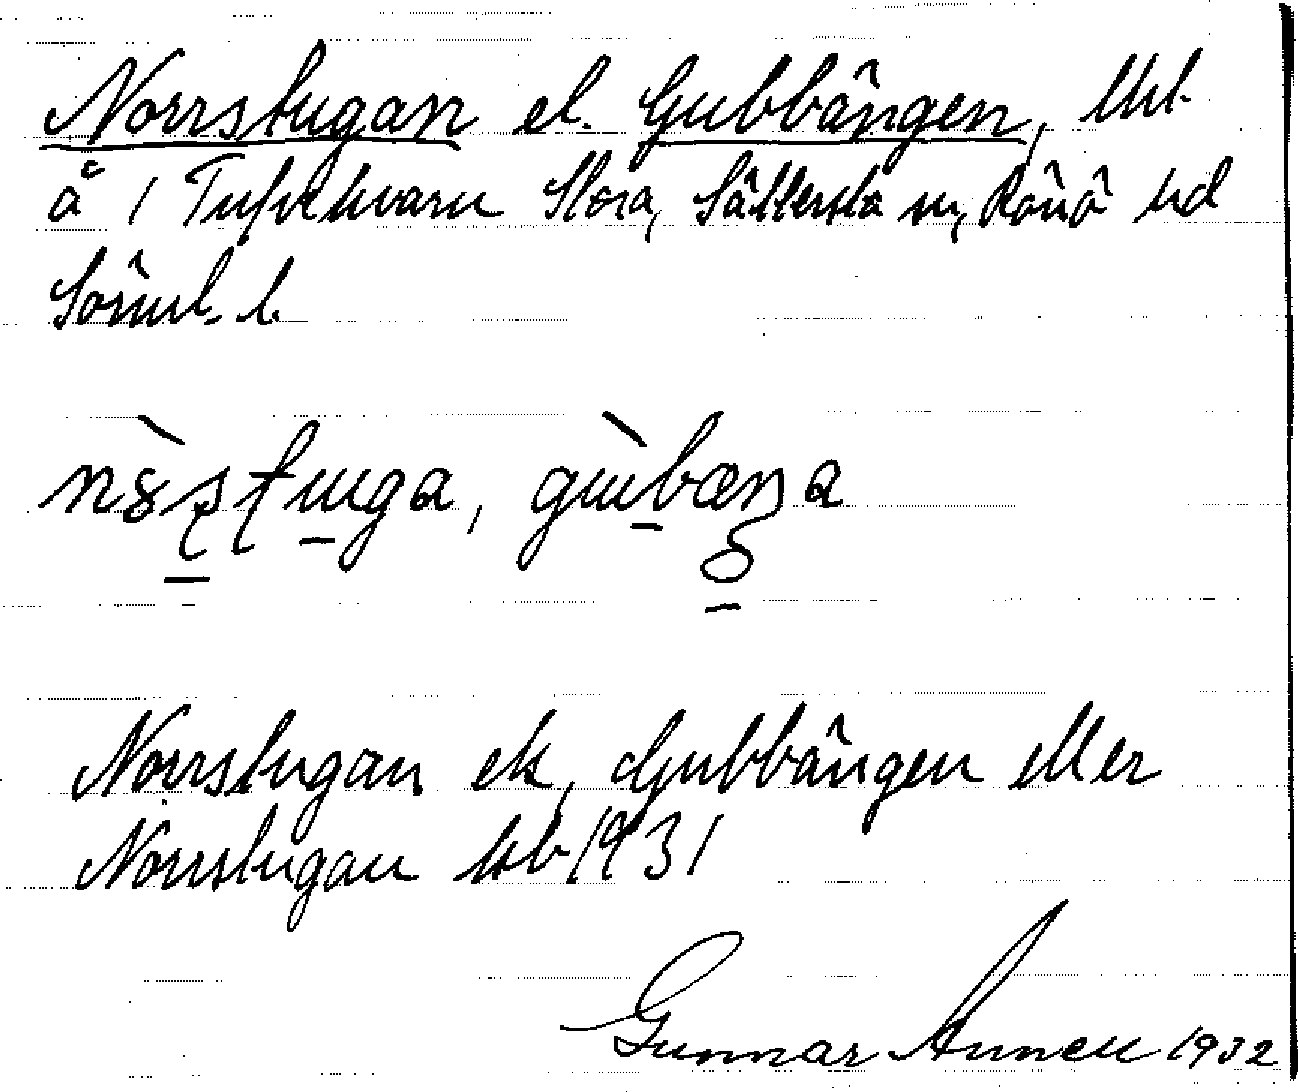 Norrstugan el. Gubbängen, Utl.
å 1 Tufvekvarn Stora, Sättersta sn, Rönö hd
Söderml. l.
nòṣṭuga, gùbæŋa
Norrstugan ek, Gubbängen eller
Norrstugan Utb 1931
Gunnar Annell 1932